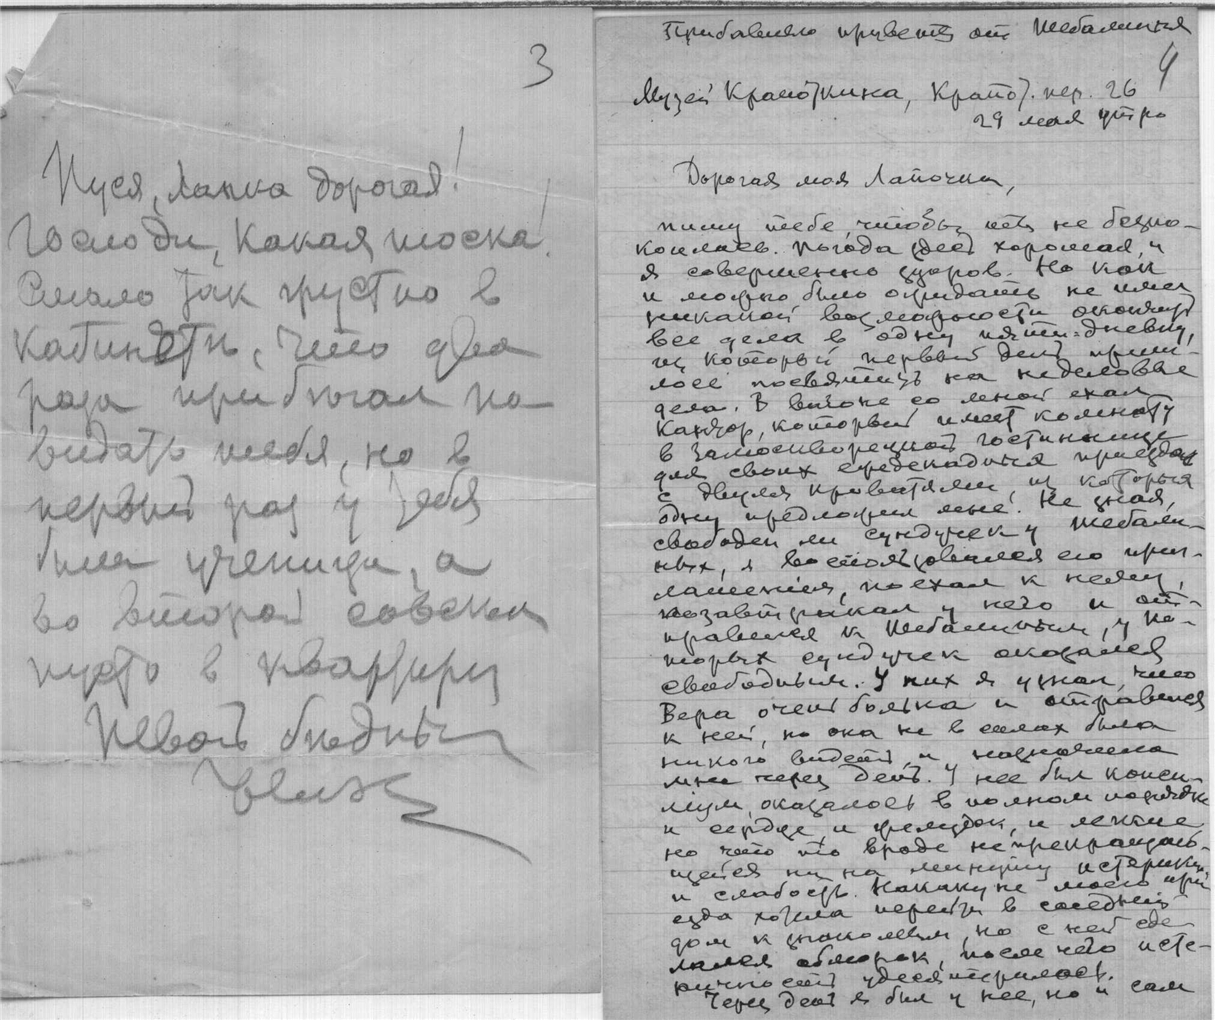 3
Пуся, лапка дорогая!
Господи, какая тоска!
Стало так грустно в
кабинетѣ, что два
раза прибѣгал по
видать тебя, но в
первый раз у тебя
была ученица, а
во второй совсем
пусто в квартирѣ
Твой бѣдный
Прибавляю привет от Шебалиных
4
Музей Кропоткина, Кропот. пер. 26
29 мая утро
Дорогая моя Лапочка,
пишу тебе, чтобы ты не безпо-
коилась. Погода здесь хорошая, и
я совершенно здоров. Но как
и можно было ожидать не имел
никакой возможности окончить
все дела в одну пяти-дневку,
из которой первый день приш-
лось посвятить на неделовые
дела. В вагоне со мной ехал
Кантор, который имеет комнату
в Замоскворецкой гостиннице
для своих приездов
с двумя кроватями, из которых
одну предложил мне. Не зная,
свободен ли сундучек у Шебали-
ных, я воспользовался его приг-
лашением, поехал к нему,
позавтракал у него и от-
правился к Шебалиным, у ко-
торых сундучек оказался
свободным. У них я узнал, что
Вера очень больна и отправился
к ней, но она не в силах была
никого видеть, и назначила
мне через день. У нее был конси-
лиум, оказалось в полном порядке
и сердце, и желудок, и легкие
но что то вроде непрекращаю-
щейся ни на минуту истерики
и слабость. Накануне моего при
езда хотела перейти в соседний
дом к знакомым, но с ней сде-
лался обморок, после чего исте-
ричность удесятирилась.
Через день я был у нее, но и сам